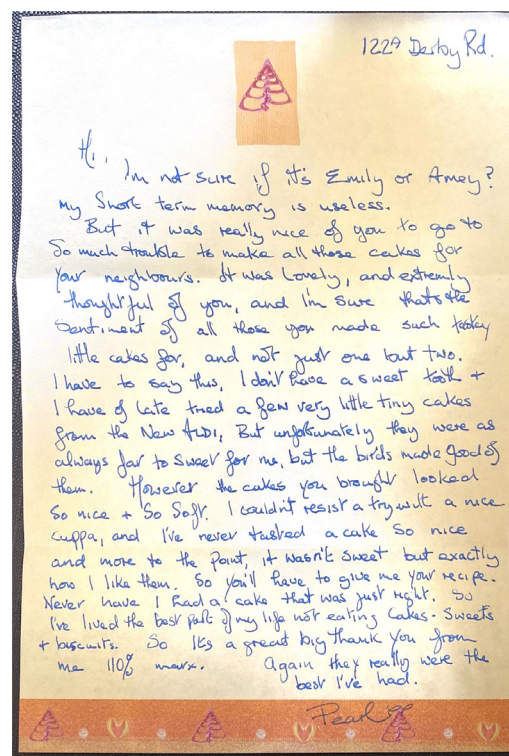 122A Derby Rd.
Hi,
I'm not sure if it's Emily or Amey?
My Short term memory is useless.
But it was really nice of you to go to
So much trouble to make all those cakes for
your neighbours. It was Lovely, and extremly
thoughtful of you, and I'm sure thats the
Sentiment of all those you made such
little cakes for, and not just one but two.
I have to say this, I don't have a sweet tooth +
I have of late tried a few very little tiny cakes
from the New ALDI, But unfortunately they were as
always far to sweet for me, but the birds made good of
them. However the cakes you brought looked
So nice + So Soft. I couldn't resist a try with a nice
cuppa, and I've never tasted a cake So nice
and more to the Point, it wasn't sweet but exactly
how I like them. So you'll have to give me your recipe.
Never have I had a cake that was just right. So
I've lived the best part of my life not eating Cakes - Sweets
+ biscuits. So It's a great big thank you from
me 110% marx. Again they really were the
best I've had.
Pearl